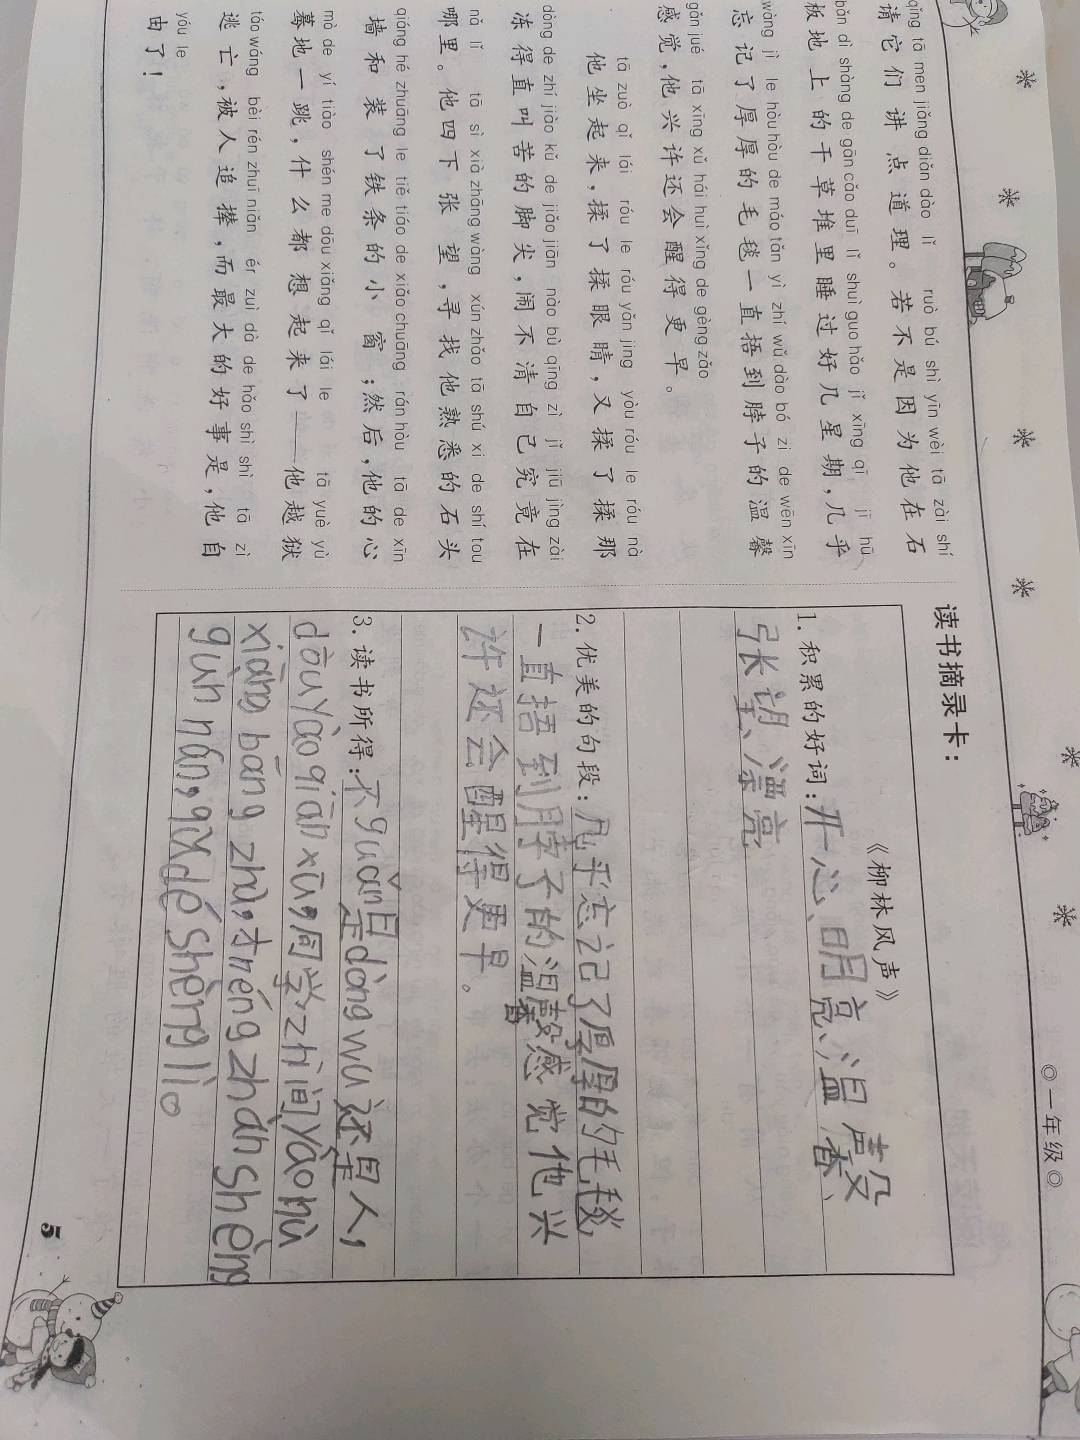 ◎一年级◎
qǐng tā men jiǎng diǎn dào lǐ ruò bú shì yīn wèi tā zài shí
请它们讲点道理。若不是因为他在石
bǎn dì shàng de gān cǎo duī lǐ shuì guo hǎo jǐ xīng qī jī hū
板地上的干草堆里睡过好几星期,几乎
wàng jì le hòu hòu de máo tǎn yì zhí wǔ dào bó zi de wēn xīn
忘记了厚厚的毛毯一直捂到脖子的温馨
gǎn jué tā xīng xǔ hái huì xǐng de gèng zǎo
感觉,他兴许还会醒得更早。
tā zuò qǐ lái róu le róu yǎn jing yòu róu le róu nà
他坐起来,揉了揉眼睛,又揉了揉那
dòng de zhí jiào kǔ de jiǎo jiān nào bù qīng zì jǐ jiū jìng zài
冻得直叫苦的脚尖,闹不清自己究竟在
nǎ lǐ tā sì xià zhāng wàng xún zhǎo tā shú xi de shí tou
哪里。他四下张望,寻找他熟悉的石头
qiáng hé zhuāng le tiě tiáo de xiǎo chuāng rán hòu tā de xīn
墙和装了铁条的小窗;然后,他的心
mò de yí tiào shén me dōu xiǎng qǐ lái le tā yuè yù
蓦地一跳,什么都想起来了——他越狱
táo wáng bèi rén zhuī niǎn ér zuì dà de hǎo shì shì tā zì
逃亡,被人追撵,而最大的好事是,他自
yóu le
由了!
读书摘录卡:
《柳林风声》
1.积累的好词:开心、明亮、温馨、
张望、漂亮
2.优美的句段:几乎忘记了厚厚的毛毯,
一直捂到脖子的温馨感觉他兴
许还会醒得更早。
3.读书所得:不guǎn是dòng wu还是人,
dōu yào qiān xū,同学zhī间yào hù
xiāng bāng zhù,才néng zhàn shèng
qún nán,qǔ dé shèng lì。
5